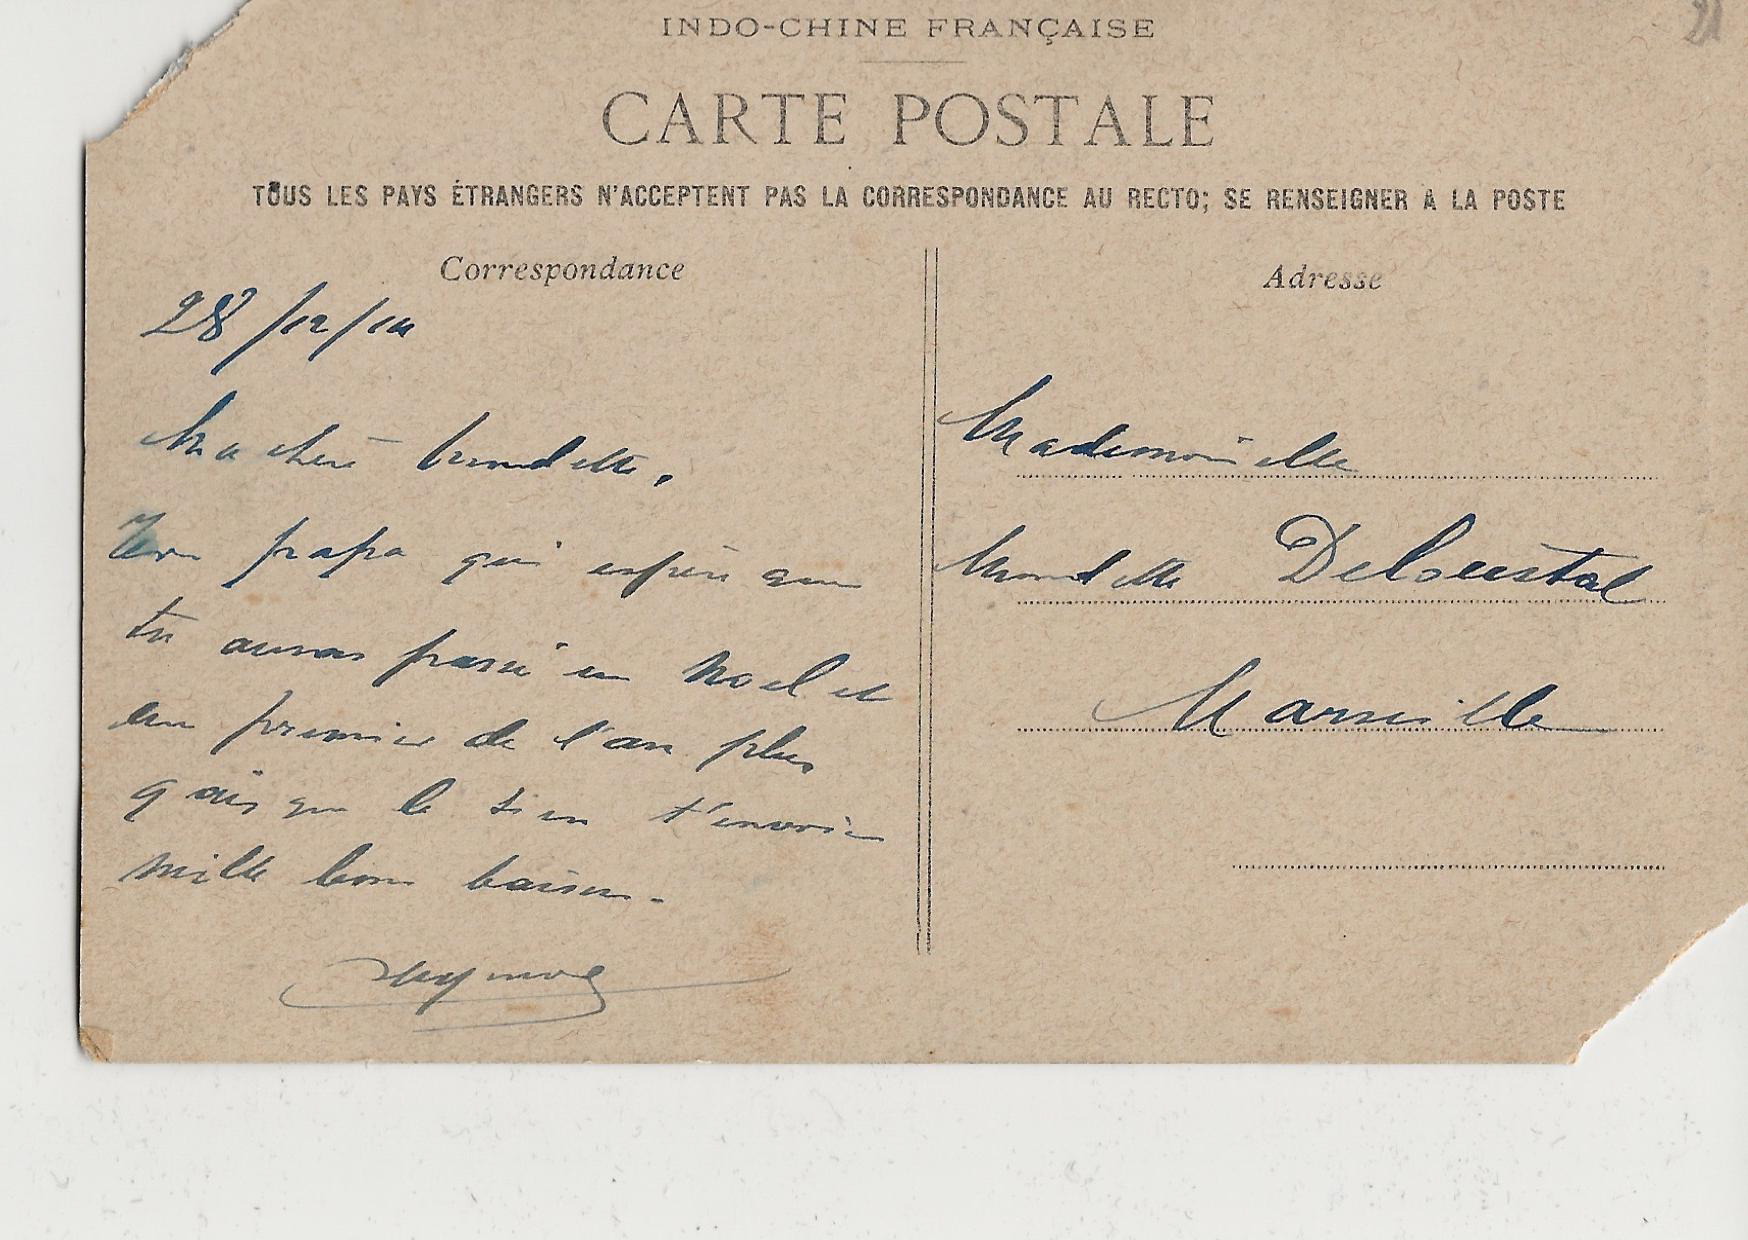 INDO-CHINE FRANÇAISE
CARTE POSTALE
TOUS LES PAYS ÉTRANGERS N'ACCEPTENT PAS LA CORRESPONDANCE AU RECTO; SE RENSEIGNER A LA POSTE
Correspondance
28/12/14
Ma chère
Ton papa qui espère que
tu auras passé un Noel et
un premier de l'an plus
gais que le sien t'envoie
mille bons baisers.
Adresse
Mademoiselle
Deloustal
Marseille